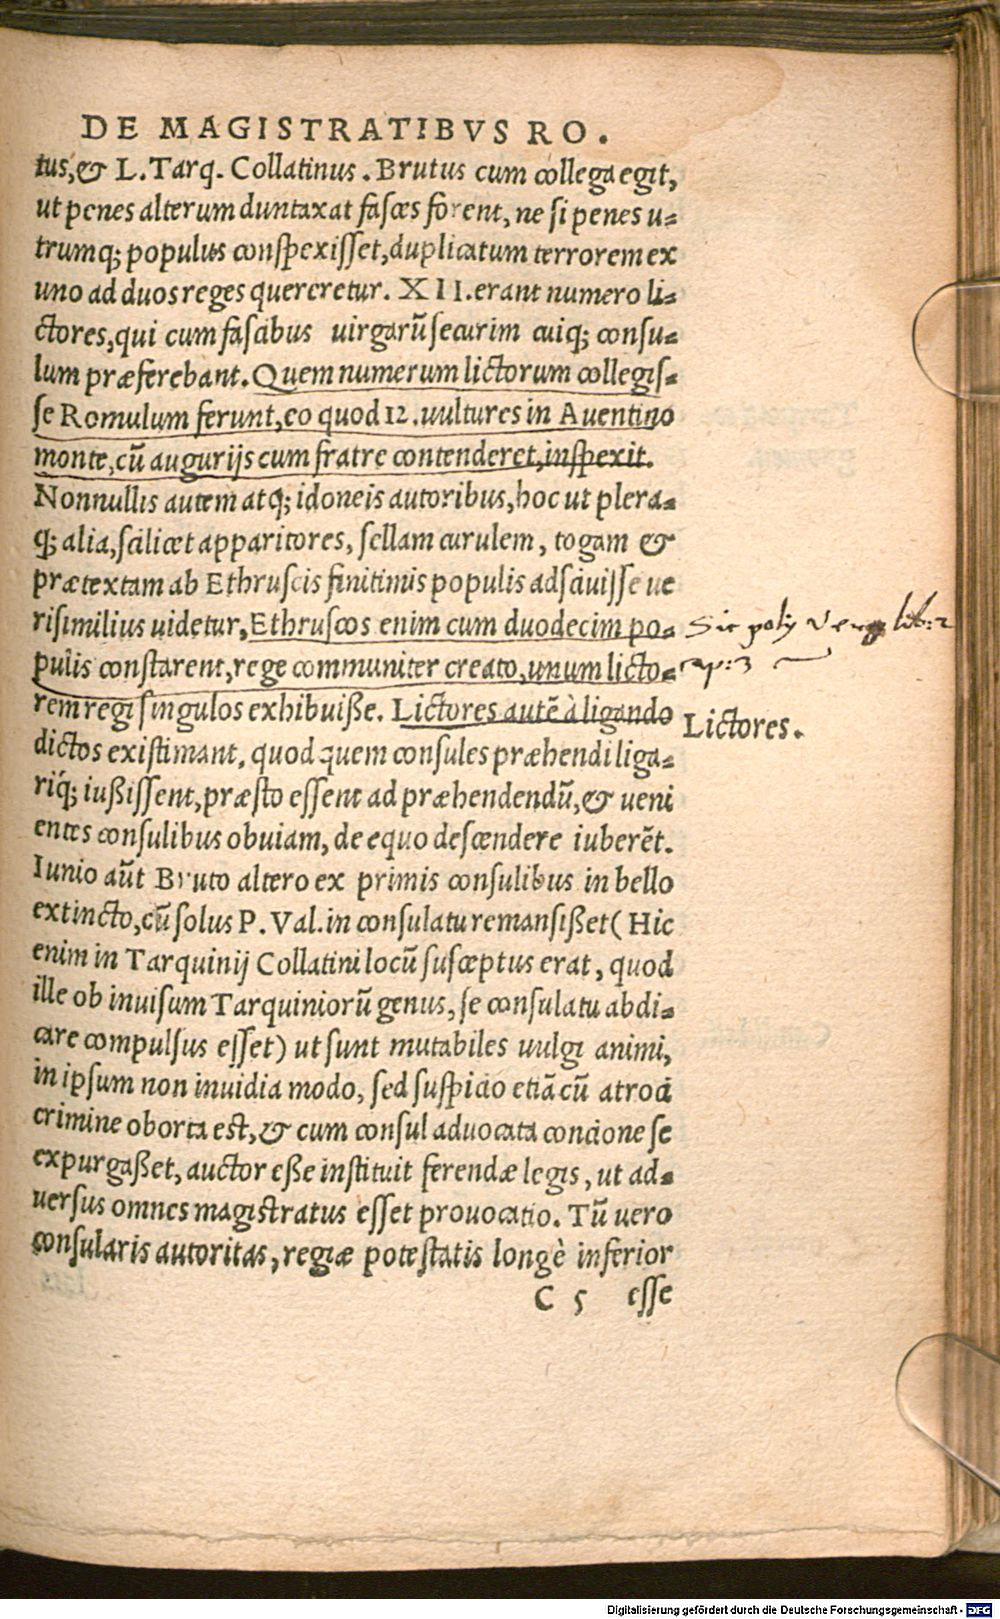 DE MAGISTRATIBVS RO.
tus,& L. Tarq. Collatinus. Brutus cum collega egit,
ut penes alterum duntaxat fasces forent, ne si penes u-
trumq; populus conspexisset, duplicatum terrorem ex
uno ad duos reges quereretur. XII. erant numero li-
ctores, qui cum fascibus uirgarũ securim cuiq; consu-
lum præferebant. Quem numerum lictorum collegis-
se Romulum ferunt, eo quod 12. uultures in Auentino
monte, cũ augurijs cum fratre contenderet, inspexit.
Nonnullis autem atq; idoneis autoribus, hoc ut plera-
q; alia, scilicet apparitores, sellam curulem, togam &
prætextam ab Ethruscis finitimis populis adsciuisse ue
risimilius uidetur, Ethruscos enim cum duodecim po-
pulis constarent, rege communiter creato, unum licto-
rem regi singulos exhibuiße. Lictores autẽ à ligando
dictos existimant, quod quem consules præhendi liga-
riq́; iußissent, præsto essent ad præhendendũ, & ueni
entes consulibus obuiam, de equo descendere iuberẽt.
Iunio aũt Bruto altero ex primis consulibus in bello
extincto, cũ solus P. Val. in consulatu remansißet (Hic
enim in Tarquinij Collatini locũ susceptus erat, quod
ille ob inuisum Tarquiniorũ genus, se consulatu abdi-
care compulsus esset) ut sunt mutabiles uulgi animi,
in ipsum non inuidia modo, sed suspicio etiã cũ atroci
crimine oborta est, & cum consul aduocata concione se
expurgaßet, auctor eße instituit ferendæ legis, ut ad-
uersus omnes magistratus esset prouocatio. Tũ uero
consularis autoritas, regiæ potestatis longè inferior
C 5 esse
Sic poly Verg lib: 2
cap: 3
Lictores.
Digitalisierung gefördert durch die Deutsche Forschungsgemeinschaft - DFG